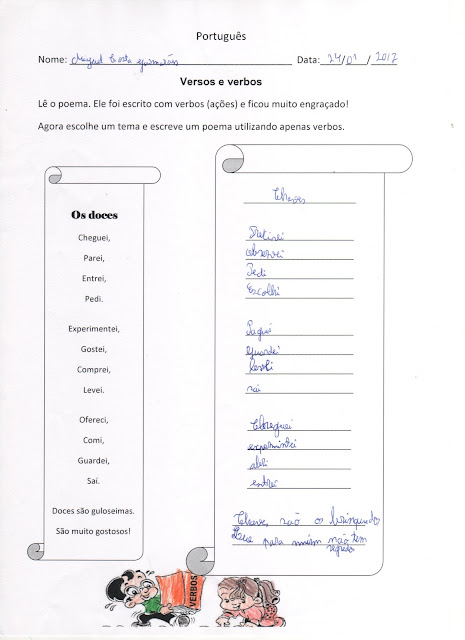 Português
Nome: Miguel Costa Guimarães Data: 24/01/2017
Versos e verbos
Lê o poema. Ele foi escrito com verbos (ações) e ficou muito engraçado!
Agora escolhe um tema e escreve um poema utilizando apenas verbos.
Os doces
Cheguei,
Parei,
Entrei,
Pedi.
Experimentei,
Gostei,
Comprei,
Levei.
Ofereci,
Comi,
Guardei,
Saí.
Doces são guloseimas.
São muito gostosos!
Chaves
observei
Pedi
Escolhi
Pagué
guardei
saí
Cheguei
abri
entrei
Chaves não os brinquedos
Que para mim não têm
segredo
VERBOS